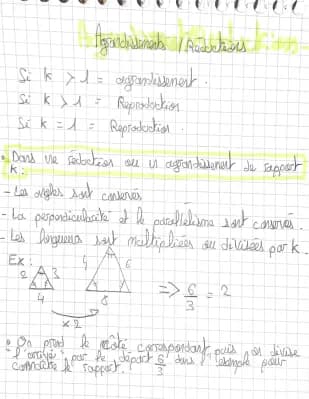 Agrandissements / Réductions
Si k > 1 = agrandissement.
Si k > 1 = Reproduction
Si k = 1 = Reproduction.
• Dans une réduction ou un agrandissement de rapport
k :
- Les angles sont conservés
- La perpendicularité et le parallélisme sont conservés.
- Les longueurs sont multipliées ou divisées par k.
Ex :
2 3
4
x 2
4 6
8
=> 6/3 = 2
• On prend le côté correspondant puis on divise
"l'arrivée" par le départ 6/3 dans l'exemple pour
connaître le rapport.